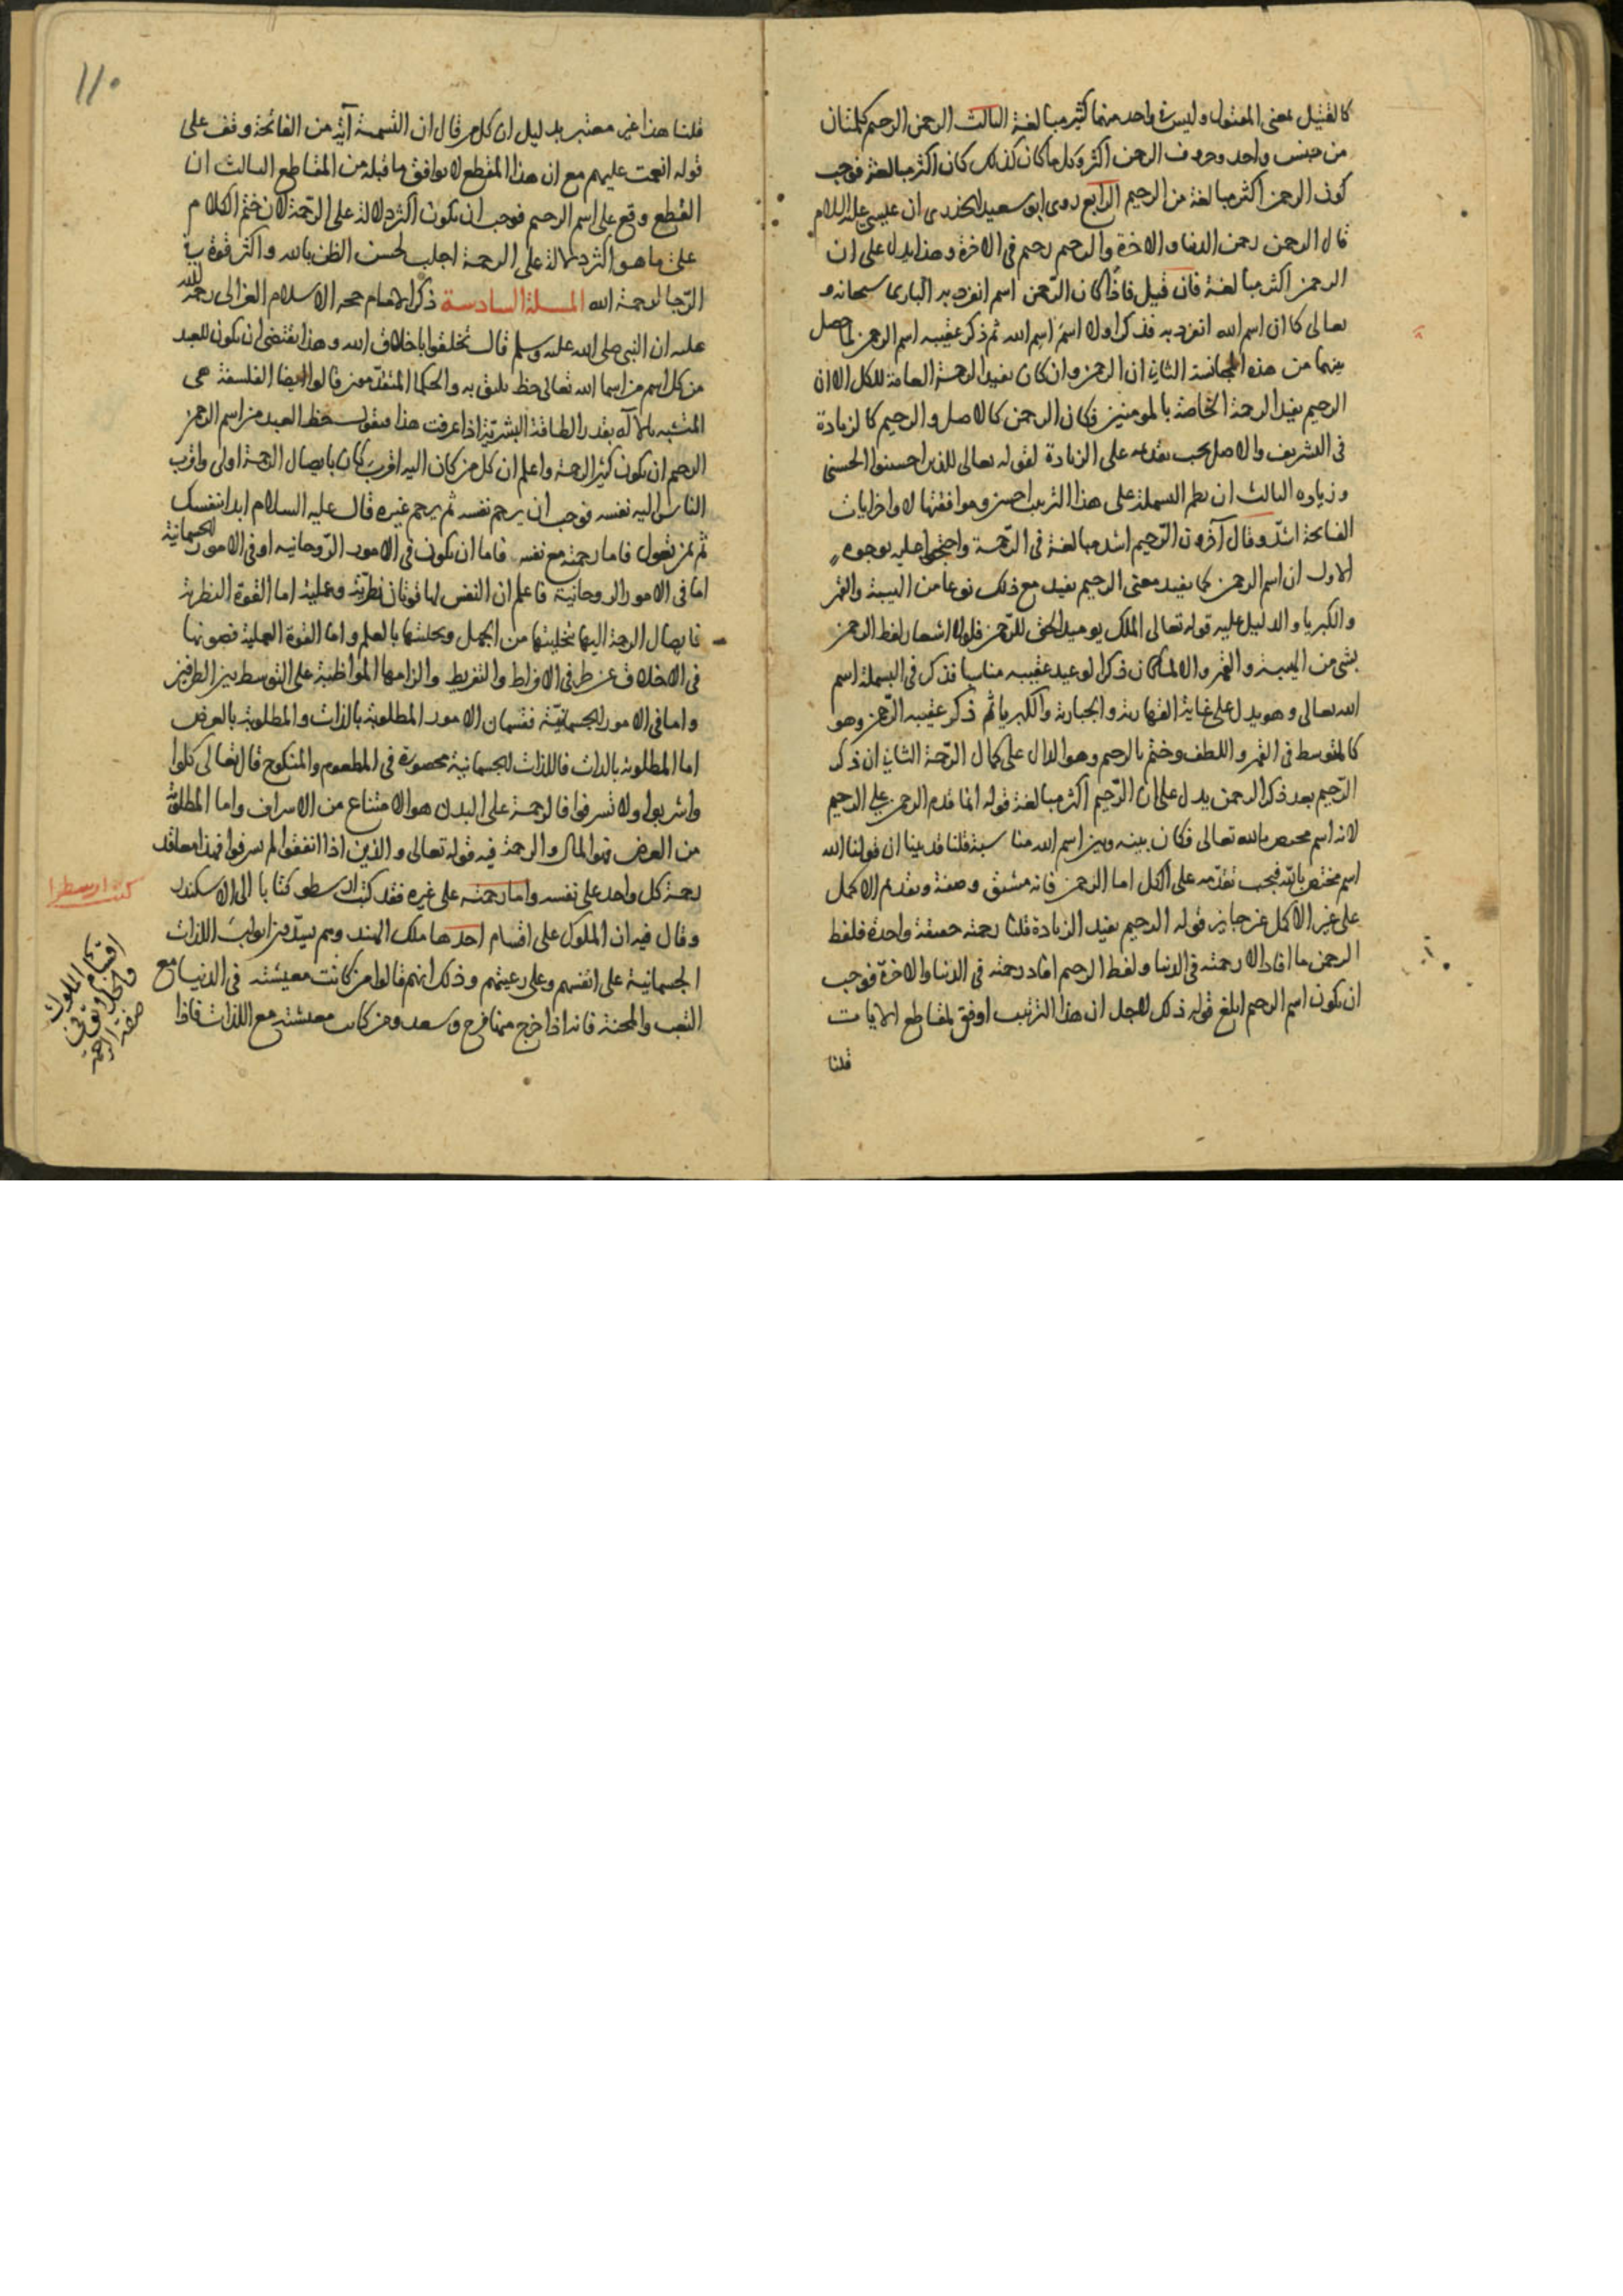 كالقتيل بمعنى المقتول وليس في واحد منهما كثير مبالغة الثالث الرحمن الرحيم كلمتان
من جنس واحد وحروف الرحمن اكثر وكل ما كان كذلك كان اكثر مبالغة فوجب
كون الرحمن اكثر مبالغة من الرحيم الرابع روى ابو سعيد الخدرى ان عيسى عليه السلام
قال الرحمن رحمن الدنيا والاخرة والرحيم رحيم فى الاخرة وهذا يدل على ان
الرحمن اكثر مبالغة فان قيل فاذا كان الرحمن اسم انفرد به البارى سبحانه و
تعالى كما ان اسم الله انفرد به فذكر اولا اسم الله ثم ذكر عقيبه اسم الرحمن لما حصل
بينهما من هذه المجانسة الثانى ان الرحمن وان كان يفيد الرحمة العامة للكل الا ان
الرحيم يفيد الرحمة الخاصة بالمومنين فكان الرحمن كالاصل والرحيم كالزيادة
فى التشريف والاصل يجب تقديمه على الزيادة لقوله تعالى للذين احسنوا الحسنى
وزيادة الثالث ان نظم البسملة على هذا الترتيب احسن وموافقتها لاواخر ايات
الفاتحة اشد وقال آخرون الرحيم اشد مبالغة فى الرحمة واحتجوا عليه بوجوه
الاول ان اسم الرحمن كما يفيد معنى الرحيم يفيد مع ذلك نوعا من الهيبة والقهر
والكبريا والدليل عليه قوله تعالى الملك يوميذ الحق للرحمن فلولا اشعار لفظ الرحمن
بشى من الهيبة والقهر والا لما كان ذكر الوعيد عقيبه مناسبا فذكر فى البسملة اسم
الله تعالى وهو يدل على غاية القهارية والجبارية والكبريا ثم ذكر عقيبه الرحمن وهو
كالمتوسط فى القهر واللطف وختم بالرحيم وهو الدال على كمال الرحمة الثانى ان ذكر
الرحيم بعد ذكر الرحمن يدل على ان الرحيم اكثر مبالغة قوله انما قدم الرحمن على الرحيم
لانه اسم مختص بالله تعالى فكان بينه وبين اسم الله مناسبة قلنا قد بينا ان قولنا الله
اسم مختص بالله فيجب تقدمه على الكل اما الرحمن فانه مشتق وصفة وتقديم الاكمل
على غير الاكمل غير جايز قوله الرحيم يفيد الزيادة قلنا رحمته حقيقة واحدة فلفظ
الرحمن ما افاد الا رحمته فى الدنيا ولفظ الرحيم افاد رحمته فى الدنيا والاخرة فوجب
ان يكون اسم الرحيم ابلغ قوله ذكر لاجل ان هذا الترتيب اوفق لمقاطع الايات
قلنا
١١٠
قلنا هذا غير معتبر بدليل ان كل من قال ان التسمية آية من الفاتحة وقف على
قوله انعمت عليهم مع ان هذا المقطع لا يوافق ما قبله من المقاطع الثالث ان
القطع وقع على اسم الرحيم فوجب ان يكون اكثر دلالة على الرحمة لان ختم الكلام
على ما هو اكثر دلالة على الرحمة اجلب لحسن الظن بالله واكثر قوة فى
الرجا لرحمة الله المسلة السادسة ذكر الامام حجه الاسلام الغزالى رحمة الله
عليه ان النبى صلى الله عليه وسلم قال تخلقوا باخلاق الله وهذا يقتضى ان يكون للعبد
من كل اسم من اسما الله تعالى حظ يليق به والحكما المتقدمون قالوا ايضا الفلسفة هى
المتشبه بالاله بقدر الطاقة البشرية اذا عرفت هذا فنقول حظ العبد من اسم الرحمن
الرحيم ان يكون كثير الرحمة واعلم ان كل من كان اليه اقرب كان بايصال الرحمة اولى واقرب
الناس اليه نفسه فوجب ان يرحم نفسه ثم يرحم غيره قال عليه السلام ابدا بنفسك
ثم بمن تعول فاما رحمته مع نفسه فاما ان يكون فى الامور الروحانيه او فى الامور الجسمانية
اما فى الامور الروحانية فاعلم ان النفس لها قوتان نظرية وعملية اما القوة النظرية
فايصال الرحمة اليها تخليتها من الجهل وتحليتها بالعلم واما القوة العملية فصونها
فى الاخلاق عن طرفى الافراط والتفريط والزامها المواظبة على التوسط بين الطرفين
واما فى الامور الجسمانية فقسمان الامور المطلوبة بالذات والمطلوبة بالعرض
اما المطلوبة بالذات فاللذات الجسمانية محصورة فى المطعوم والمنكوح قال تعالى كلوا
واشربوا ولا تسرفوا فالرحمة على البدن هو الامتناع من الاسراف واما المطلوبة
من العرض فهو المال والرحمة فيه قوله تعالى والذين اذا انفقوا لم يسرفوا فهذا معاقد
رحمة كل واحد على نفسه واما رحمته على غيره فقد كتب ارسطو كتابا الى الاسكندر
وقال فيه ان الملوك على اقسام احدها ملك الهند وهم يسدون ابواب اللذات
الجسمانية على انفسهم وعلى رعيتهم وذلك انهم قالوا من كانت معيشته فى الدنيا مع
التعب والمحنة فانه اذا خرج منها فرح وسعد ومن كانت معيشته مع اللذات فاذا
اقسام الملوك